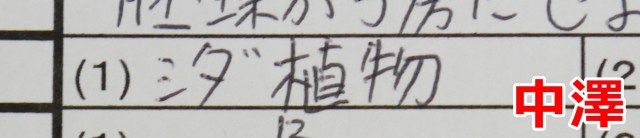 (1) シダ植物
(2
中澤